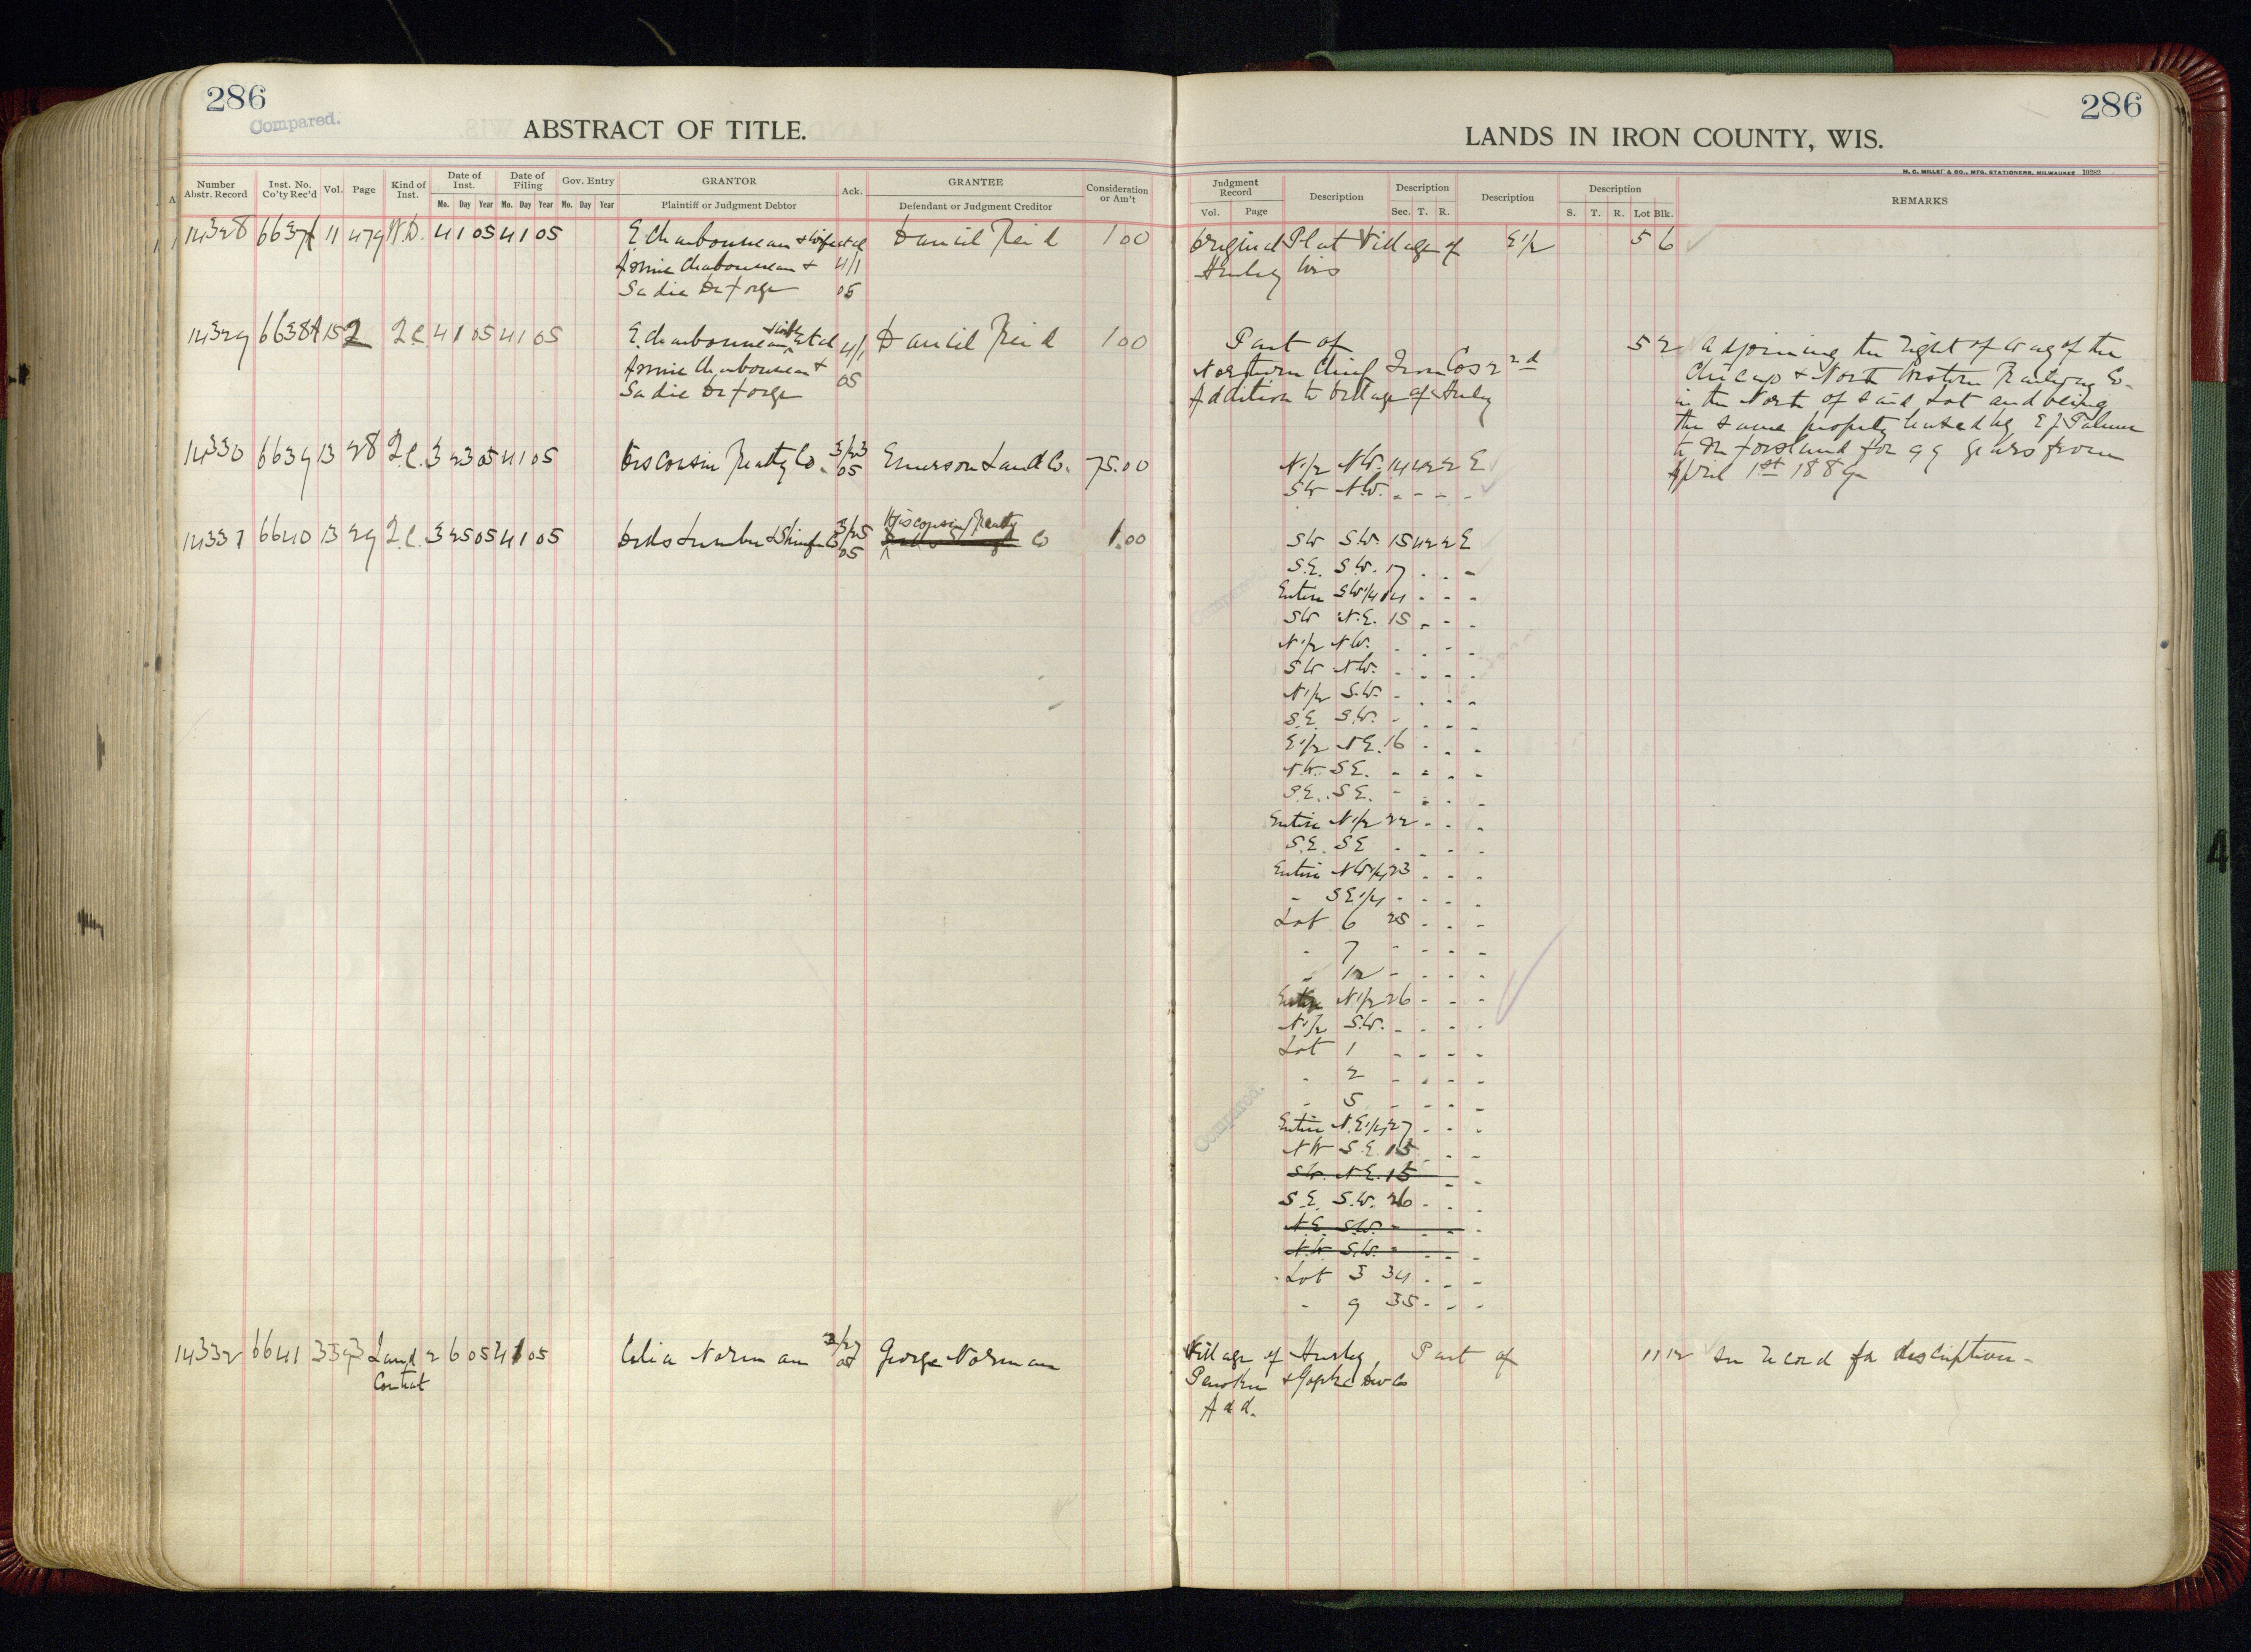 286
Compared.
ABSTRACT OF TITLE.
Number Abstr. Record Inst. No. Co'ty Rec'd Vol. Page Kind of Inst. Date of Inst. Date of Filing Gov. Entry GRANTOR Ack. GRANTEE Consideration or Am't
Mo. Day Year Mo. Day Year Mo. Day Year Plaintiff or Judgment Debtor Defendant or Judgment Creditor
14328 6637 11 479 W.D. 4 1 05 4 1 05 E Charbonneau & wife et al Daniel Reid 1 00
Charbonneau & 4/1
Sadie DeForge 05
14329 6638 15 2 Q.C. 4 1 05 4 1 05 E. Charbonneau & wife et al 4/1 Daniel Reid 1 00
Charbonneau & 05
Sadie DeForge
14330 6639 13 28 Q.C. 3 23 05 4 1 05 Wisconsin Realty Co. 3/23 05 Emerson Land Co. 75.00
14331 6640 13 29 Q.C. 3 25 05 4 1 05 Lumber & Shingle Co 3/25 05 Wisconsin Realty Co 1.00
14332 6641 3 593 Land Contract 2 6 05 4 1 05 Celia Norman 05 George Norman
286
LANDS IN IRON COUNTY, WIS.
H. C. MILLER & CO., MFG. STATIONERS, MILWAUKEE
Judgment Record Description Description Description Description REMARKS
Vol. Page Sec. T. R. S. T. R. Lot Blk.
Original Plat Village of E 1/2 5 6
Hurley Wis
Part of 5 2 Adjoining the right of way of the
Northern Chief Iron Cos 2nd Chicago & North Western Railway Co.
Addition to Village of Hurley on the North of said Lot and being
the same property leased by E J Palmer
to for 99 years from
April 1st 1889
N 1/2 NW. 14 42 2 E
SW NW. - - - -
SW SW. 15 42 2 E
S.E. S.W. 17 - - -
Entire SW 1/4 14 - - -
SW N.E. 15 - - -
N 1/2 NW. - - - -
SW NW. - - - -
N 1/2 S.W. - - - -
S.E. S.W. - - - -
E 1/2 N.E. 16 - - -
N.W. S.E. - - - -
S.E. S.E. - - - -
Entire N 1/2 22 - - -
S.E. SE - - - -
Entire NW 1/4 23 - - -
- SE 1/4 - - - -
Lot 6 25 - - -
- 7 - - - -
- 12 - - - -
Entire N 1/2 26 - - -
N 1/2 S.W. - - - -
Lot 1 - - - -
- 2 - - - -
- 5 - - - -
Compared.
Entire N.E 1/4 27 - - -
NW S.E. 15 - - -
SW. N.E. 15 - -
S.E. S.W. 26 - - -
N.E. S.W. - - - -
N.W. S.W. - - - -
Lot 3 34 - - -
- 9 35 - - -
Village of Hurley, Part of 11 12 See record for description -
Add.